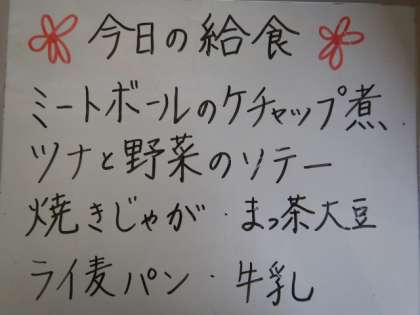 今日の給食
ミートボールのケチャップ煮
ツナと野菜のソテー
焼きじゃが・まっ茶大豆
ライ麦パン・牛乳